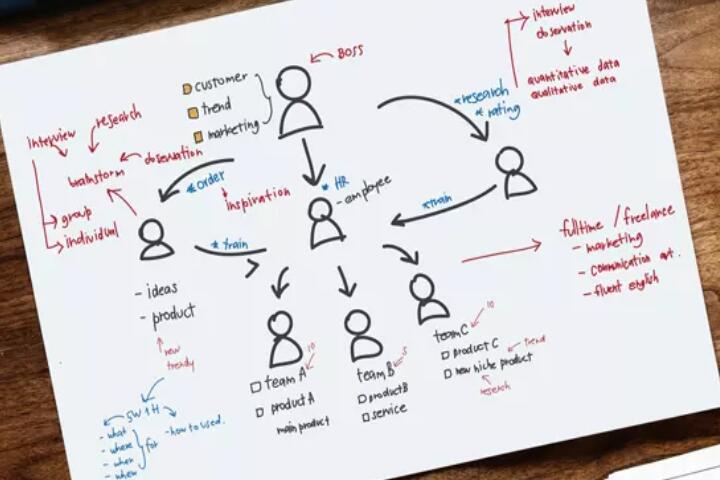 BOSS
customer
trend
marketing
interview
observation
quantitative data
qualitative data
*research
*rating
interview
research
observation
brainstorm
group
individual
*order
inspiration
* HR
- employee
*train
*train
- ideas
- product
new
trendy
5W1H
- what
- where
- when
for
- how to used.
team A
10
product A
main product
team B
5
product B
service
team C
10
product C
trend
new niche product
research
fulltime / freelance
- marketing
- communication
- fluent english